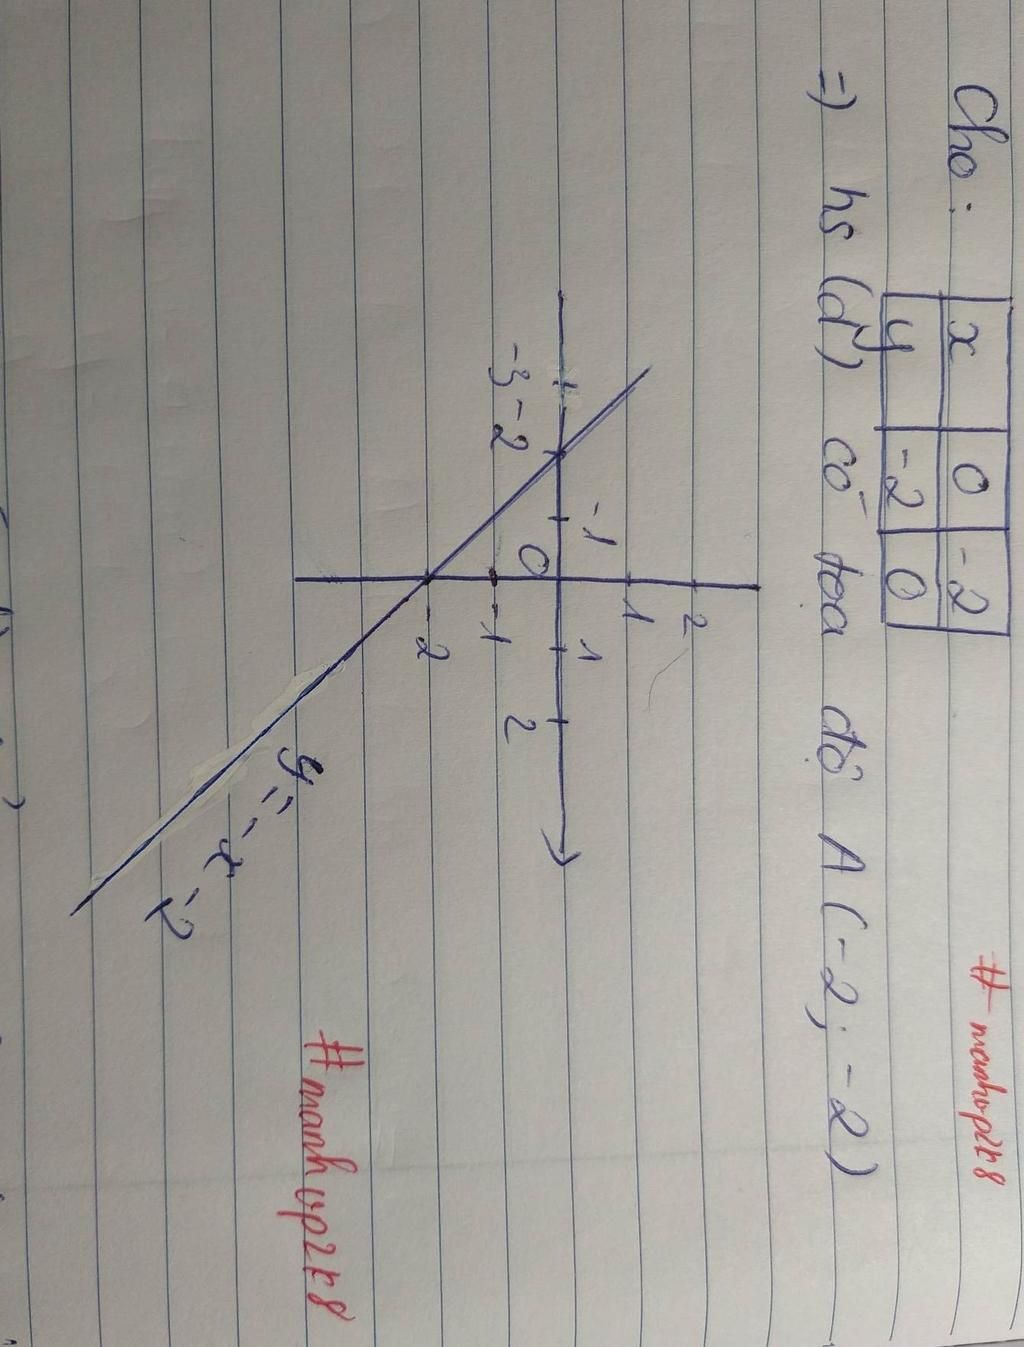 Cho:
x 0 -2
y -2 0
# manhop2k8
=) hs (d) có toạ độ A (-2; -2)
2
1
-1 1
0
-3 -2 2
-1
-2
y = -x -2
# manhop2k8